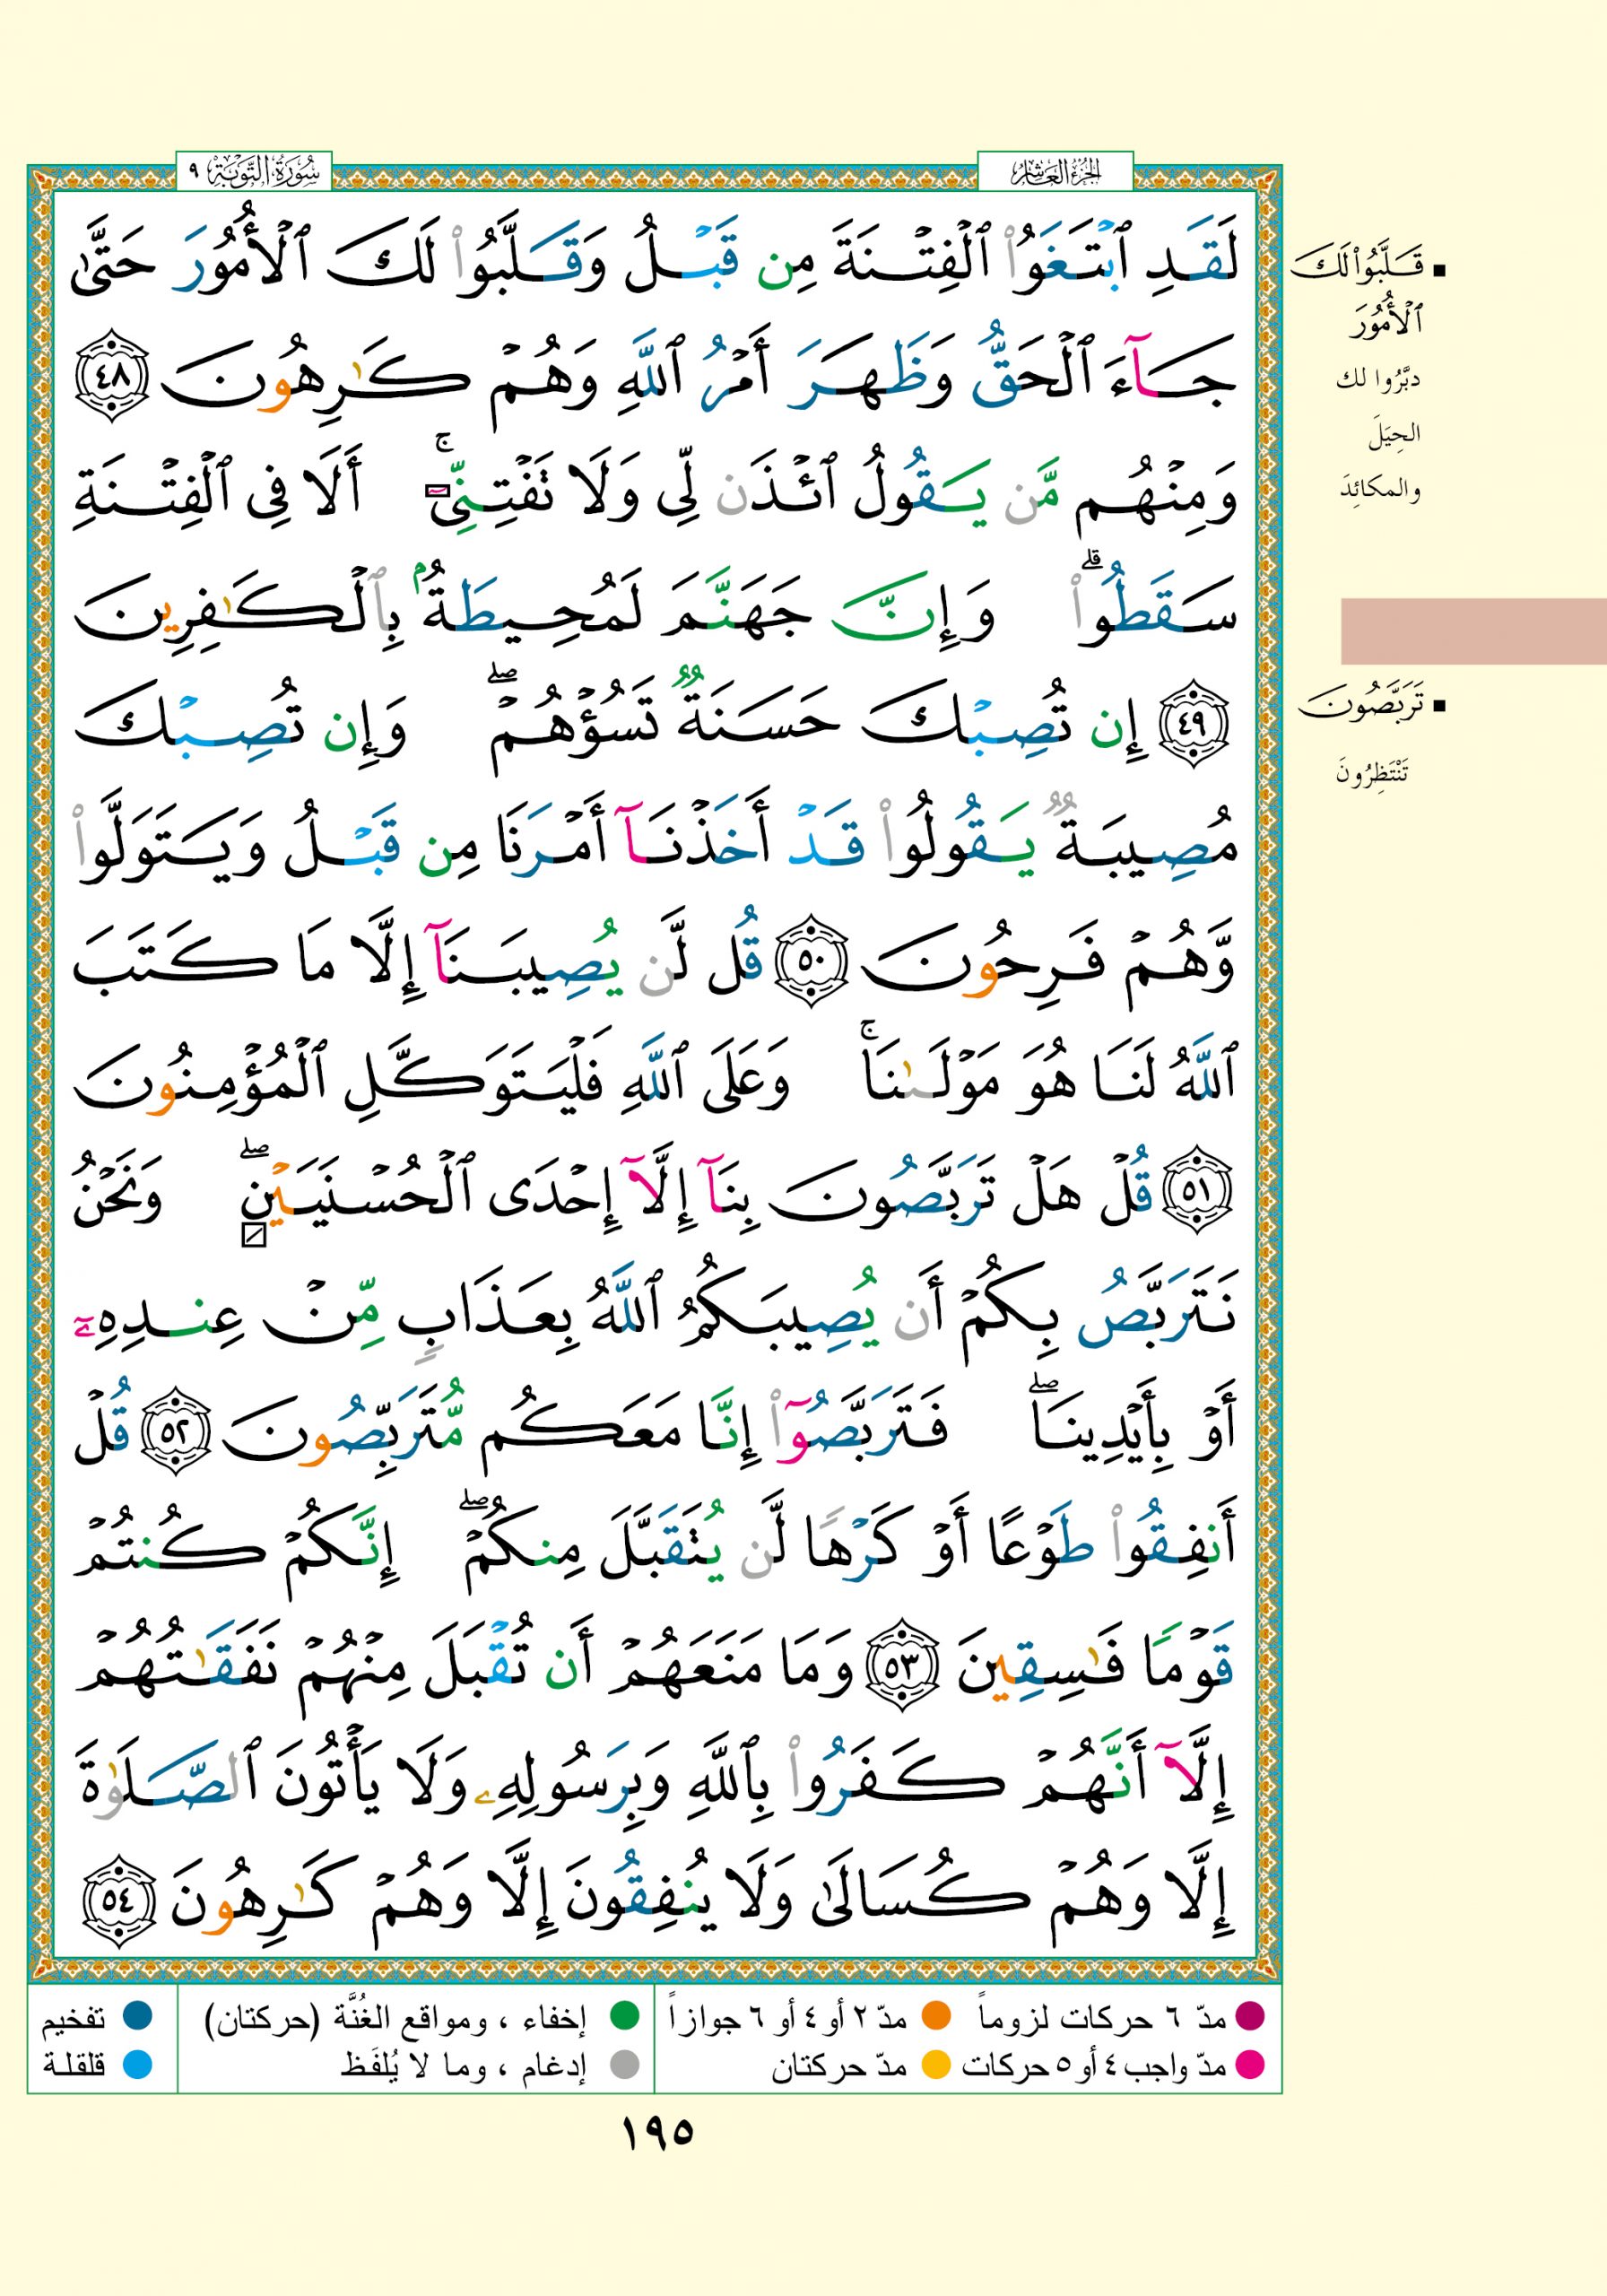 الجزء العاشر
سورة التوبة ٩
لَقَدِ ٱبْتَغَوُا۟ ٱلْفِتْنَةَ مِن قَبْلُ وَقَلَّبُوا۟ لَكَ ٱلْأُمُورَ حَتَّىٰ
جَآءَ ٱلْحَقُّ وَظَهَرَ أَمْرُ ٱللَّهِ وَهُمْ كَٰرِهُونَ ٤٨
وَمِنْهُم مَّن يَقُولُ ٱئْذَن لِّى وَلَا تَفْتِنِّىٓ ۚ أَلَا فِى ٱلْفِتْنَةِ
سَقَطُوا۟ ۗ وَإِنَّ جَهَنَّمَ لَمُحِيطَةٌۢ بِٱلْكَٰفِرِينَ
٤٩ إِن تُصِبْكَ حَسَنَةٌ تَسُؤْهُمْ ۖ وَإِن تُصِبْكَ
مُصِيبَةٌ يَقُولُوا۟ قَدْ أَخَذْنَآ أَمْرَنَا مِن قَبْلُ وَيَتَوَلَّوا۟
وَّهُمْ فَرِحُونَ ٥٠ قُل لَّن يُصِيبَنَآ إِلَّا مَا كَتَبَ
ٱللَّهُ لَنَا هُوَ مَوْلَىٰنَا ۚ وَعَلَى ٱللَّهِ فَلْيَتَوَكَّلِ ٱلْمُؤْمِنُونَ
٥١ قُلْ هَلْ تَرَبَّصُونَ بِنَآ إِلَّآ إِحْدَى ٱلْحُسْنَيَيْنِ ۖ وَنَحْنُ
نَتَرَبَّصُ بِكُمْ أَن يُصِيبَكُمُ ٱللَّهُ بِعَذَابٍ مِّنْ عِندِهِۦٓ
أَوْ بِأَيْدِينَا ۖ فَتَرَبَّصُوٓا۟ إِنَّا مَعَكُم مُّتَرَبِّصُونَ ٥٢ قُلْ
أَنفِقُوا۟ طَوْعًا أَوْ كَرْهًا لَّن يُتَقَبَّلَ مِنكُمْ ۖ إِنَّكُمْ كُنتُمْ
قَوْمًا فَٰسِقِينَ ٥٣ وَمَا مَنَعَهُمْ أَن تُقْبَلَ مِنْهُمْ نَفَقَٰتُهُمْ
إِلَّآ أَنَّهُمْ كَفَرُوا۟ بِٱللَّهِ وَبِرَسُولِهِۦ وَلَا يَأْتُونَ ٱلصَّلَوٰةَ
إِلَّا وَهُمْ كُسَالَىٰ وَلَا يُنفِقُونَ إِلَّا وَهُمْ كَٰرِهُونَ ٥٤
قَلَّبُوا۟ لَكَ
ٱلْأُمُورَ
دبَّرُوا لك
الحِيَلَ
والمكائِدَ
تَرَبَّصُونَ
تَنْتَظِرُونَ
مدّ ٦ حركات لزوماً مدّ ٢ أو ٤ أو ٦ جوازاً إخفاء ، ومواقع الغُنَّة (حركتان) تفخيم
مدّ واجب ٤ أو ٥ حركات مدّ حركتان إدغام ، وما لا يُلفَظ قلقلة
١٩٥